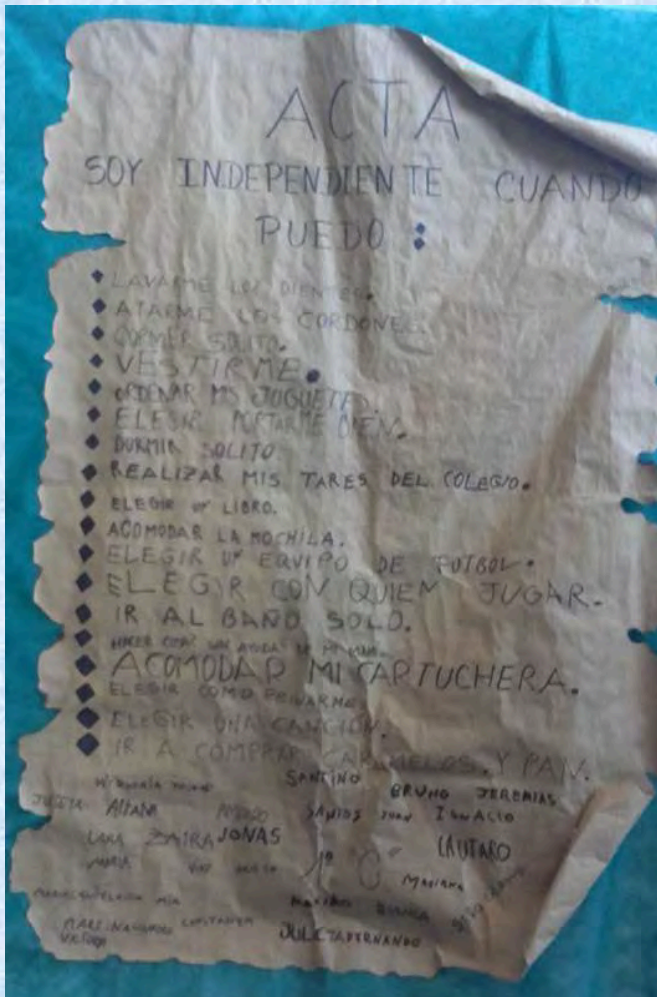 ACTA
SOY INDEPENDIENTE CUANDO
PUEDO :
LAVARME LOS DIENTES.
ATARME LOS CORDONES
DORMIR SOLITO.
VESTIRME.
ORDENAR MIS JUGUETES
ELEGIR PORTARME BIEN.
DURMIR SOLITO
REALIZAR MIS TARES DEL COLEGIO.
ELEGIR UN LIBRO.
ACOMODAR LA MOCHILA.
ELEGIR UN EQUIPO DE FUTBOL.
ELEGIR CON QUIEN JUGAR.
IR AL BAÑO SOLO.
HACER COSAS SIN AYUDA DE MI MAMÁ.
ACOMODAR MI CARTUCHERA.
ELEGIR COMO PEINARME
ELEGIR UNA CANCIÓN.
IR A COMPRAR CARAMELOS. Y PAN.
SANTINO BRUNO JEREMIAS
AITANA SANTOS JUAN IGNACIO
LARA ZAIRA JONAS LAUTARO
MARIA 1º "C" MARIANA
MAXIMO BIANCA
CONSTANZA
JULIETA FERNANDO